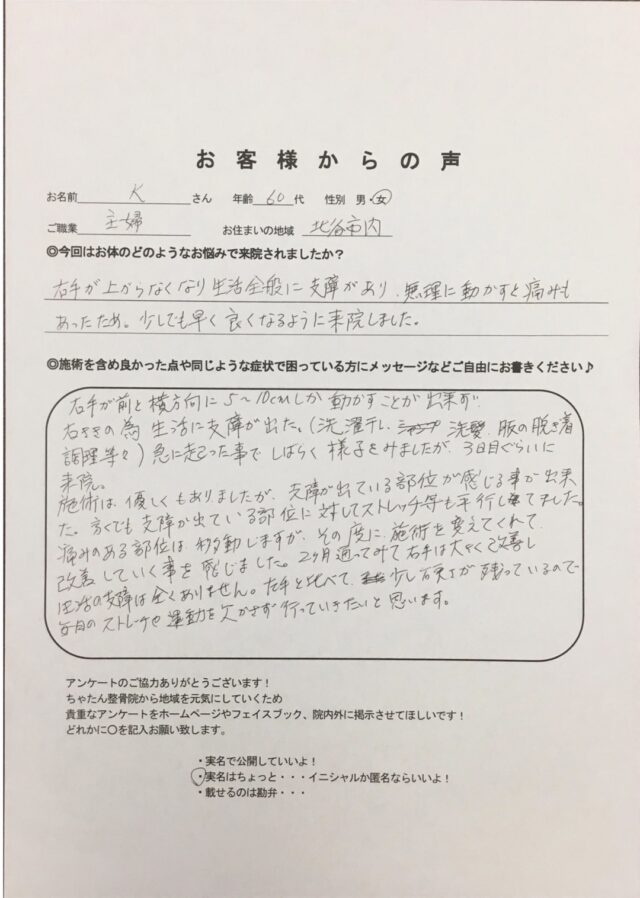 お客様からの声
お名前 K さん 年齢 60 代 性別 男・女
ご職業 主婦 お住まいの地域 北谷市内
◎今回はお体のどのようなお悩みで来院されましたか？
右手が上がらなくなり生活全般に支障があり、無理に動かすと痛みも
あったため。少しでも早く良くなるように来院しました。
◎施術を含め良かった点や同じような症状で困っている方にメッセージなどご自由にお書きください♪
右手が前と横方向に5〜10cmしか動かすことが出来ず
右ききの為 生活に支障が出た。(洗濯干し 洗髪 服の脱ぎ着
調理等々)急に起った事で しばらく 様子をみましたが、3日目ぐらいに
来院。
施術は、優しくもありましたが、支障が出ている部位が感じる事が出来
た。家でも支障が出ている部位に対してストレッチ等も平行してました。
痛みのある部位は移動しますが、その度に施術を変えてくれて
改善していく事を感じました。2ヶ月通ってみて右手は大きく改善し
生活の支障は全くありません。左手と比べて、少し が残っているので
毎日のストレッチや運動を欠かさず行っていきたいと思います。
アンケートのご協力ありがとうございます！
ちゃたん整骨院から地域を元気にしていくため
貴重なアンケートをホームページやフェイスブック、院内外に掲示させてほしいです！
どれかに〇を記入お願い致します。
・実名で公開していいよ！
・実名はちょっと・・・イニシャルか匿名ならいいよ！
・載せるのは勘弁・・・